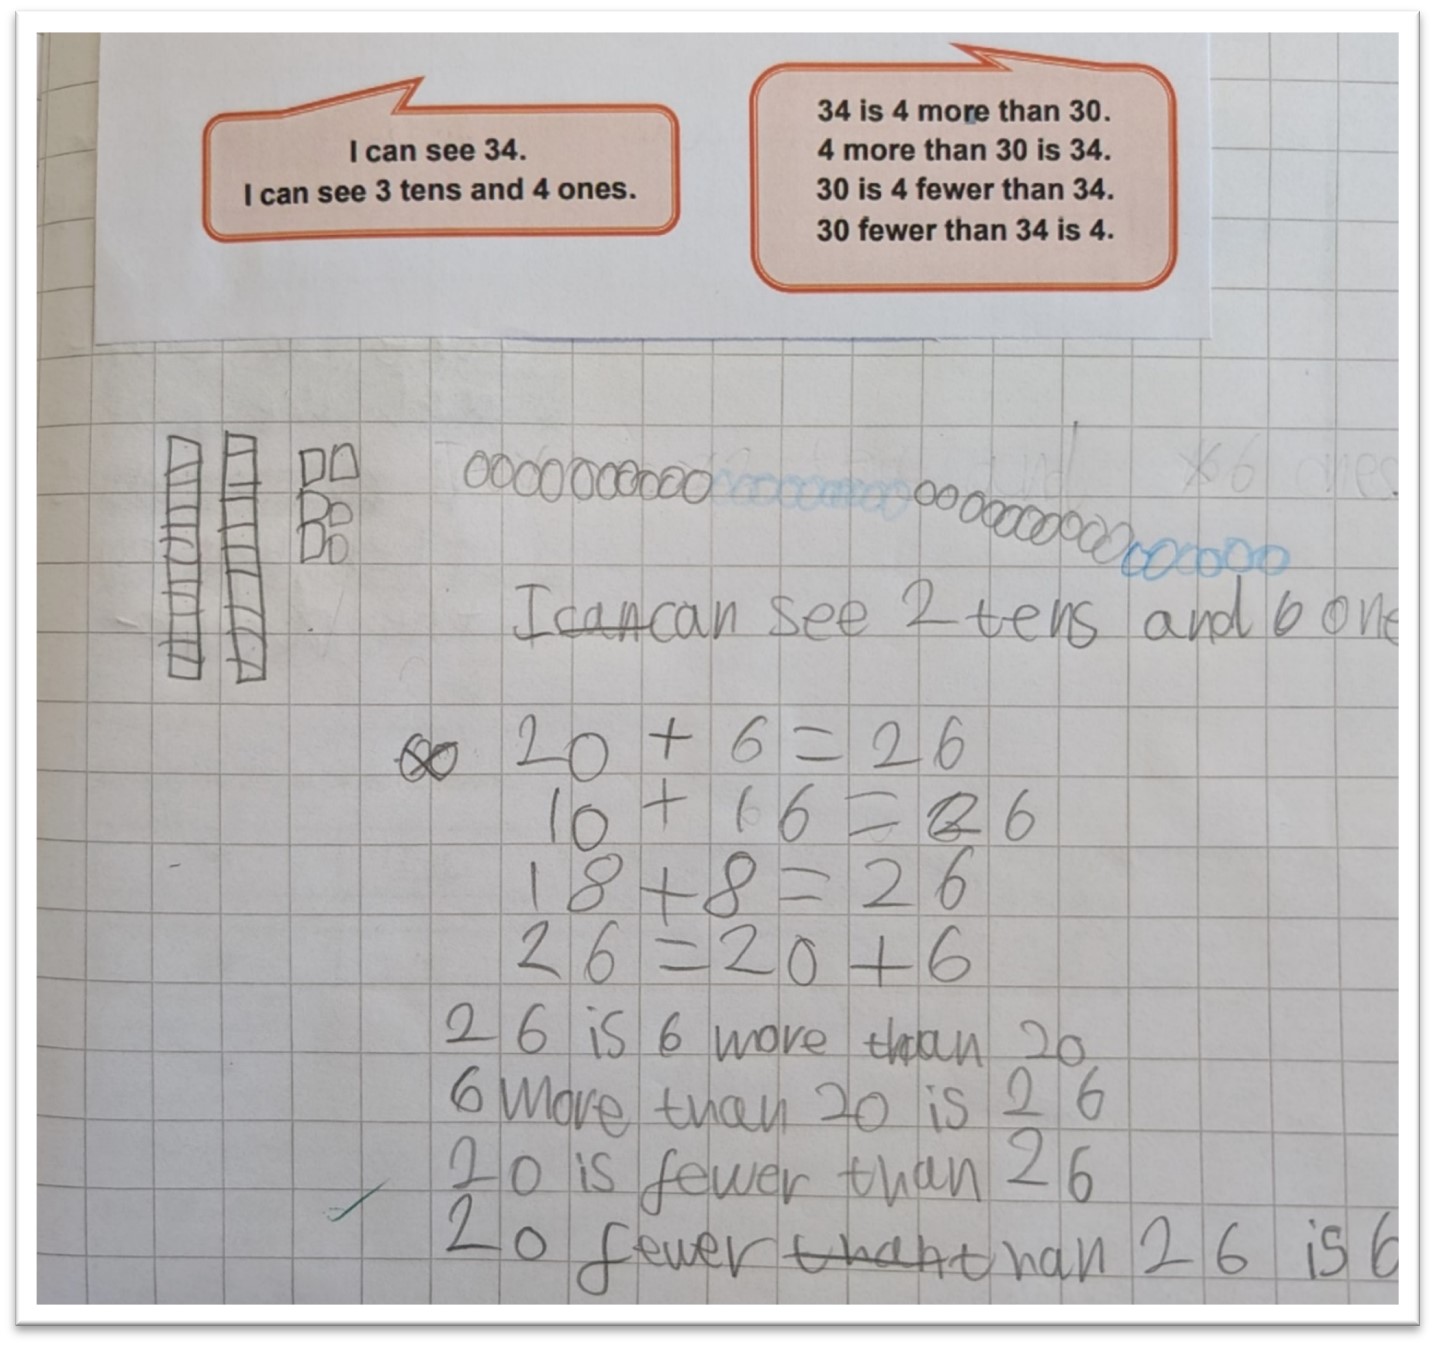 I can see 34.
I can see 3 tens and 4 ones.
34 is 4 more than 30.
4 more than 30 is 34.
30 is 4 fewer than 34.
30 fewer than 34 is 4.
6 ones
I can can see 2 tens and 6 one
20 + 6 = 26
10 + 16 = 26
18 + 8 = 26
26 = 20 + 6
26 is 6 more than 20
6 more than 20 is 26
20 is fewer than 26
20 fewer than than 26 is 6